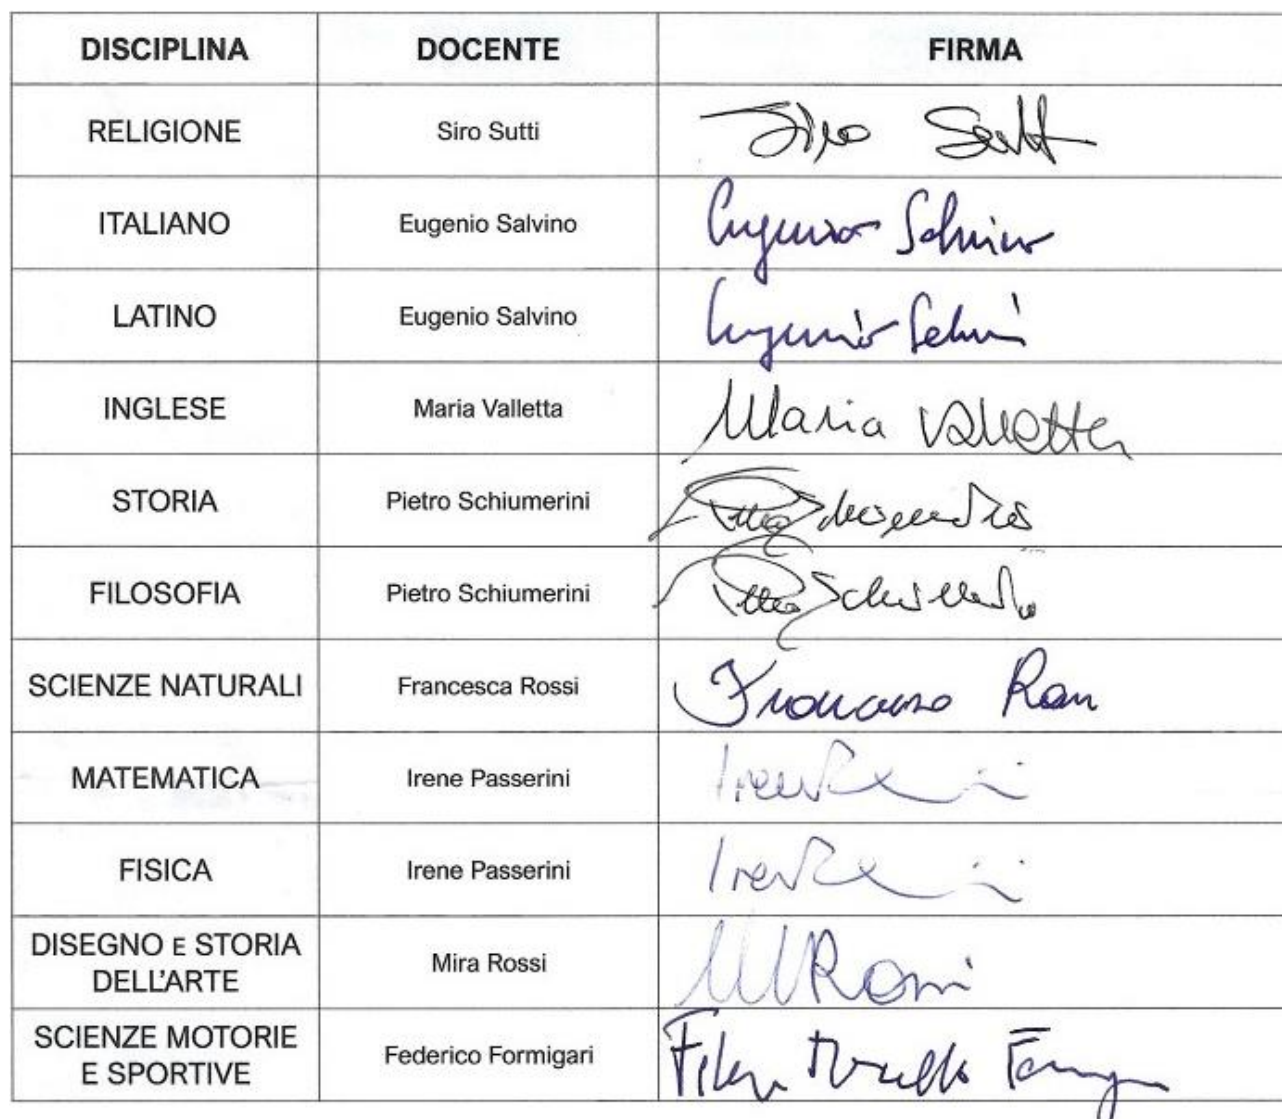 DISCIPLINA DOCENTE FIRMA
RELIGIONE Siro Sutti Siro Sutti
ITALIANO Eugenio Salvino Eugenio Salvino
LATINO Eugenio Salvino Eugenio Salvi
INGLESE Maria Valletta Maria Valletta
STORIA Pietro Schiumerini
FILOSOFIA Pietro Schiumerini
SCIENZE NATURALI Francesca Rossi Francesca Rossi
MATEMATICA Irene Passerini Irene
FISICA Irene Passerini Irene
DISEGNO E STORIA
DELL'ARTE Mira Rossi M Rossi
SCIENZE MOTORIE
E SPORTIVE Federico Formigari